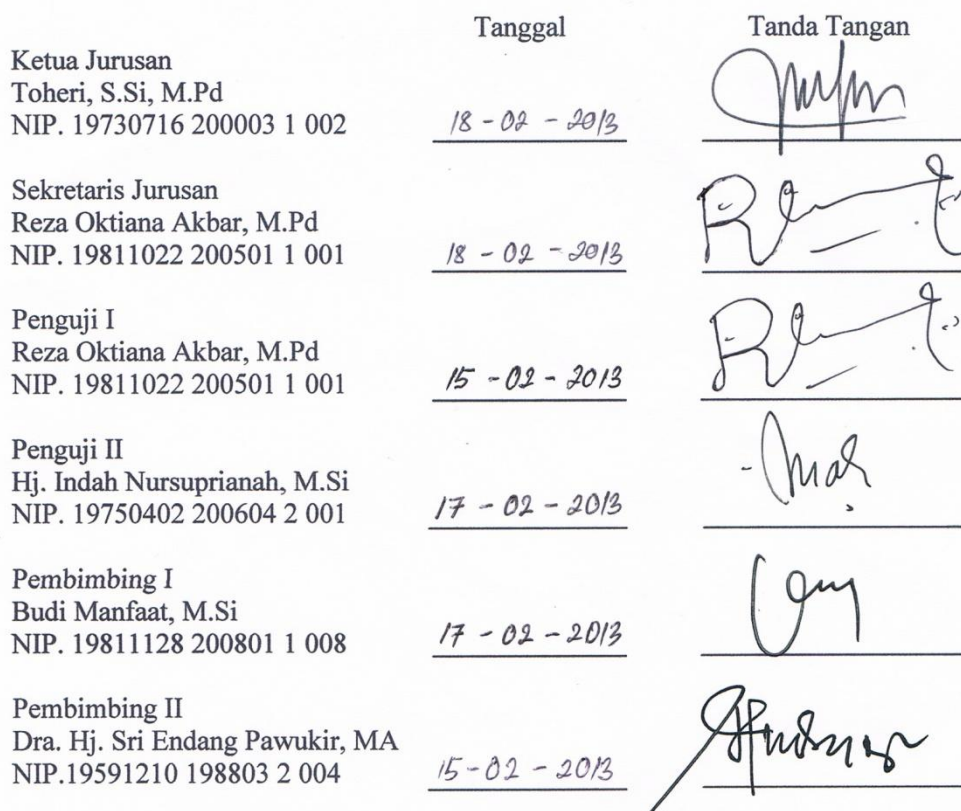 Tanggal Tanda Tangan
Ketua Jurusan
Toheri, S.Si, M.Pd
NIP. 19730716 200003 1 002 18 - 02 - 2013
Sekretaris Jurusan
Reza Oktiana Akbar, M.Pd
NIP. 19811022 200501 1 001 18 - 02 - 2013
Penguji I
Reza Oktiana Akbar, M.Pd
NIP. 19811022 200501 1 001 15 - 02 - 2013
Penguji II
Hj. Indah Nursuprianah, M.Si
NIP. 19750402 200604 2 001 17 - 02 - 2013
Pembimbing I
Budi Manfaat, M.Si
NIP. 19811128 200801 1 008 17 - 02 - 2013
Pembimbing II
Dra. Hj. Sri Endang Pawukir, MA
NIP.19591210 198803 2 004 15 - 02 - 2013